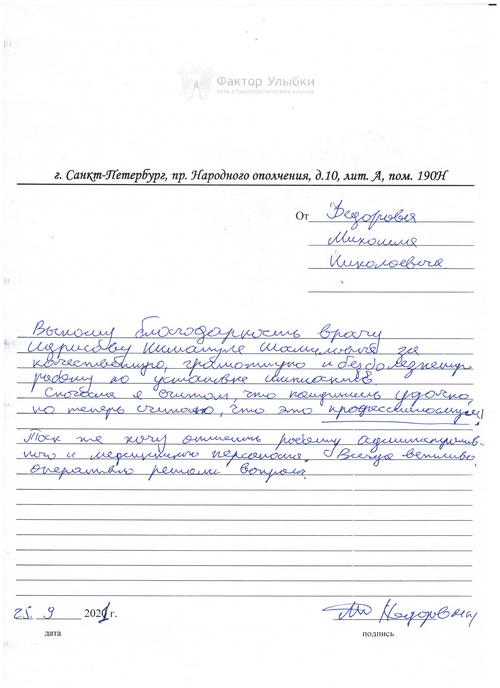 Фактор Улыбки
сеть стоматологических клиник
г. Санкт-Петербург, пр. Народного ополчения, д.10, лит. А, пом. 190Н
От Федоровых
Михаила
Николаевича
Выношу благодарность врачу
за
качественную, грамотную и безболезненную
работу по установке имплантов
Сначала я считал, что удачно,
но теперь считаю, что это профессионализм!
Так же хочу отметить работу административ-
ного и медицинского персонала. Всегда вежливо,
оперативно решали вопросы.
25. 9 2021 г.
дата подпись